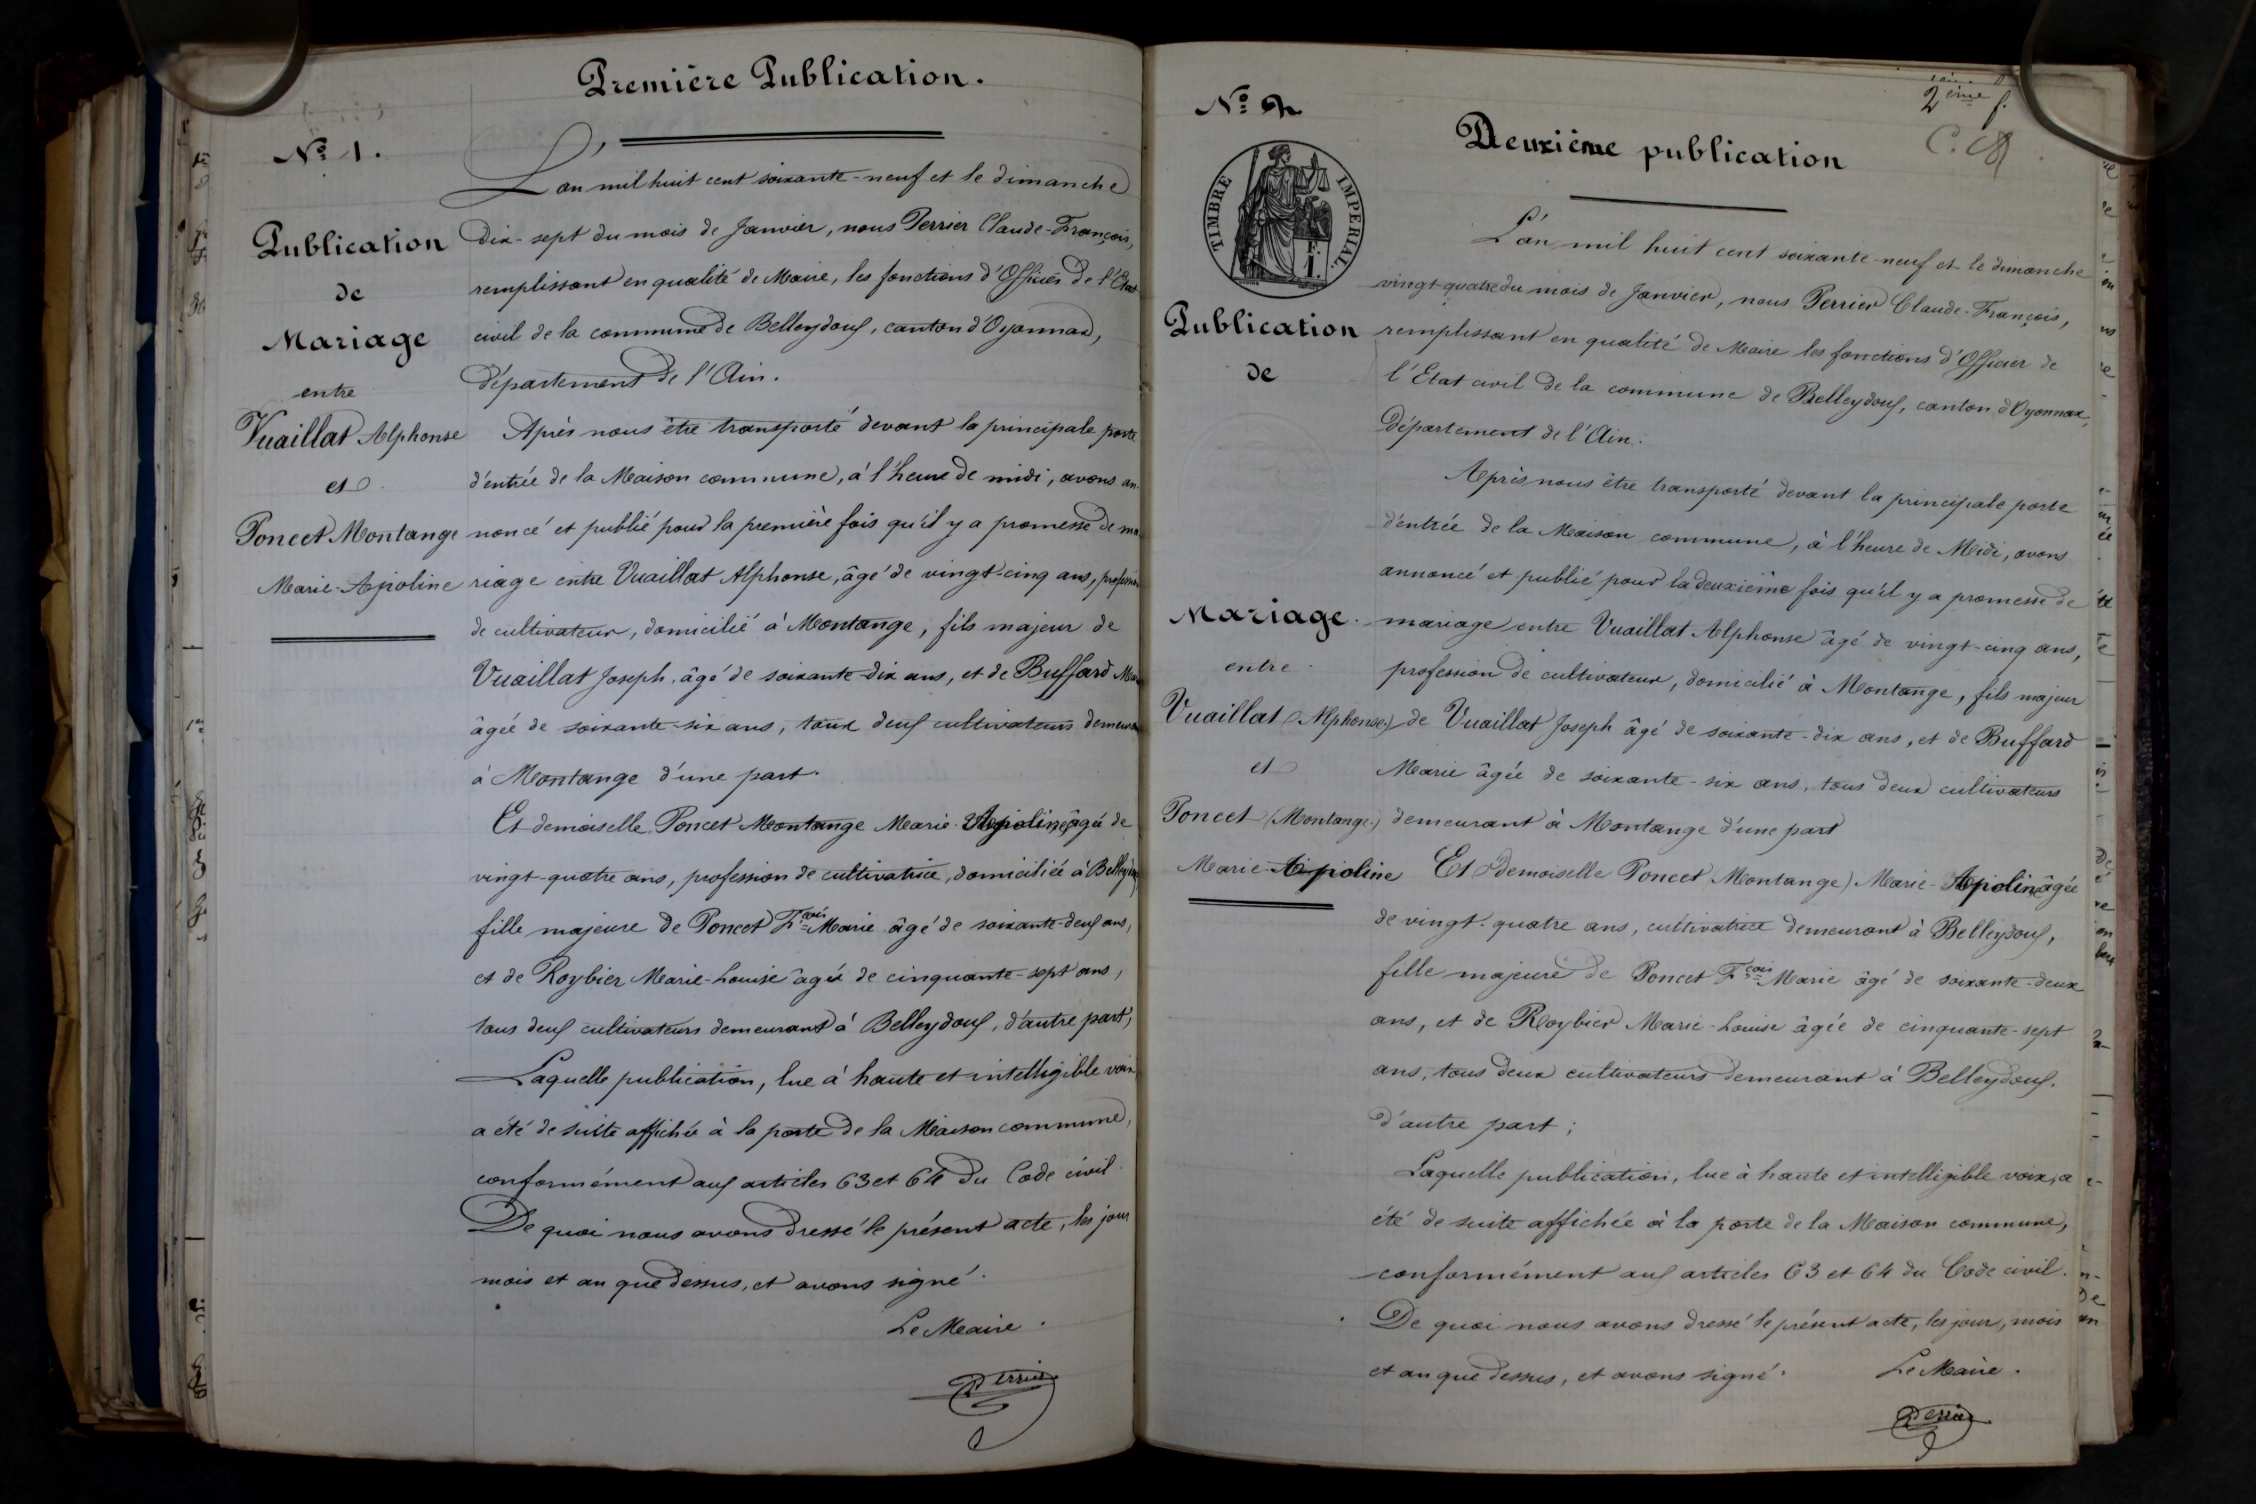 Première Publication.
N° 1.
Publication
de
Mariage
entre
Vuaillat Alphonse
et
Poncet Montange
Marie-Apoline
L'an mil huit cent soixante-neuf et le dimanche
dix-sept du mois de Janvier, nous Perrier Claude-François,
remplissant en qualité de Maire, les fonctions d'Officier de l'Etat
civil de la commune de Belleydoux, canton d'Oyonnax,
département de l'Ain.
Après nous être transporté devant la principale porte
d'entrée de la Maison commune, à l'heure de midi, avons an
noncé et publié pour la première fois qu'il y a promesse de ma
riage entre Vuaillat Alphonse, âgé de vingt-cinq ans, profession
de cultivateur, domicilié à Montange, fils majeur de
Vuaillat Joseph, âgé de soixante-dix ans, et de Buffard
âgée de soixante-six ans, toux deux cultivateurs
à Montange d'une part.
Et demoiselle Poncet Montange Marie-Apoline, âgée de
vingt-quatre ans, profession de cultivatrice, domiciliée à Belleydoux,
fille majeure de Poncet Fçois Marie âgé de soixante-deux ans,
et de Roybier Marie-Louise âgée de cinquante-sept ans,
tous deux cultivateurs demeurant à Belleydoux, d'autre part,
Laquelle publication, lue à haute et intelligible voix
a été de suite affichée à la porte de la Maison commune,
conformément aux articles 63 et 64 du Code civil.
De quoi nous avons dressé le présent acte, les jour
mois et an que dessus, et avons signé.
Le Maire.
Perrier
2ème f.
N° 2
Deuxième publication
TIMBRE IMPERIAL.
Publication
de
Mariage.
entre
Vuaillat (Alphonse)
et
Poncet (Montange)
Marie-Apoline
L'an mil huit cent soixante-neuf et le dimanche
vingt-quatre du mois de Janvier, nous Perrier Claude-François,
remplissant en qualité de Maire les fonctions d'Officier de
l'Etat civil de la commune de Belleydoux, canton d'Oyonnax,
Département de l'Ain.
Après nous être transporté devant la principale porte
d'entrée de la Maison commune, à l'heure de Midi, avons
annoncé et publié pour la deuxième fois qu'il y a promesse de
mariage entre Vuaillat Alphonse âgé de vingt-cinq ans,
profession de cultivateur, domicilié à Montange, fils majeur
de Vuaillat Joseph âgé de soixante-dix ans, et de Buffard
Marie âgée de soixante-six ans, tous deux cultivateurs
demeurant à Montange d'une part
Et demoiselle Poncet Montange) Marie-Apoline âgée
de vingt-quatre ans, cultivatrice demeurant à Belleydoux,
fille majeure de Poncet Fçois Marie âgé de soixante-deux
ans, et de Roybier Marie-Louise âgée de cinquante-sept
ans, tous deux cultivateurs demeurant à Belleydoux.
d'autre part;
Laquelle publication, lue à haute et intelligible voix, a
été de suite affichée à la porte de la Maison commune,
conformément aux articles 63 et 64 du Code civil.
De quoi nous avons dressé le présent acte, les jour, mois
et an que dessus, et avons signé.
Le Maire.
Perrier